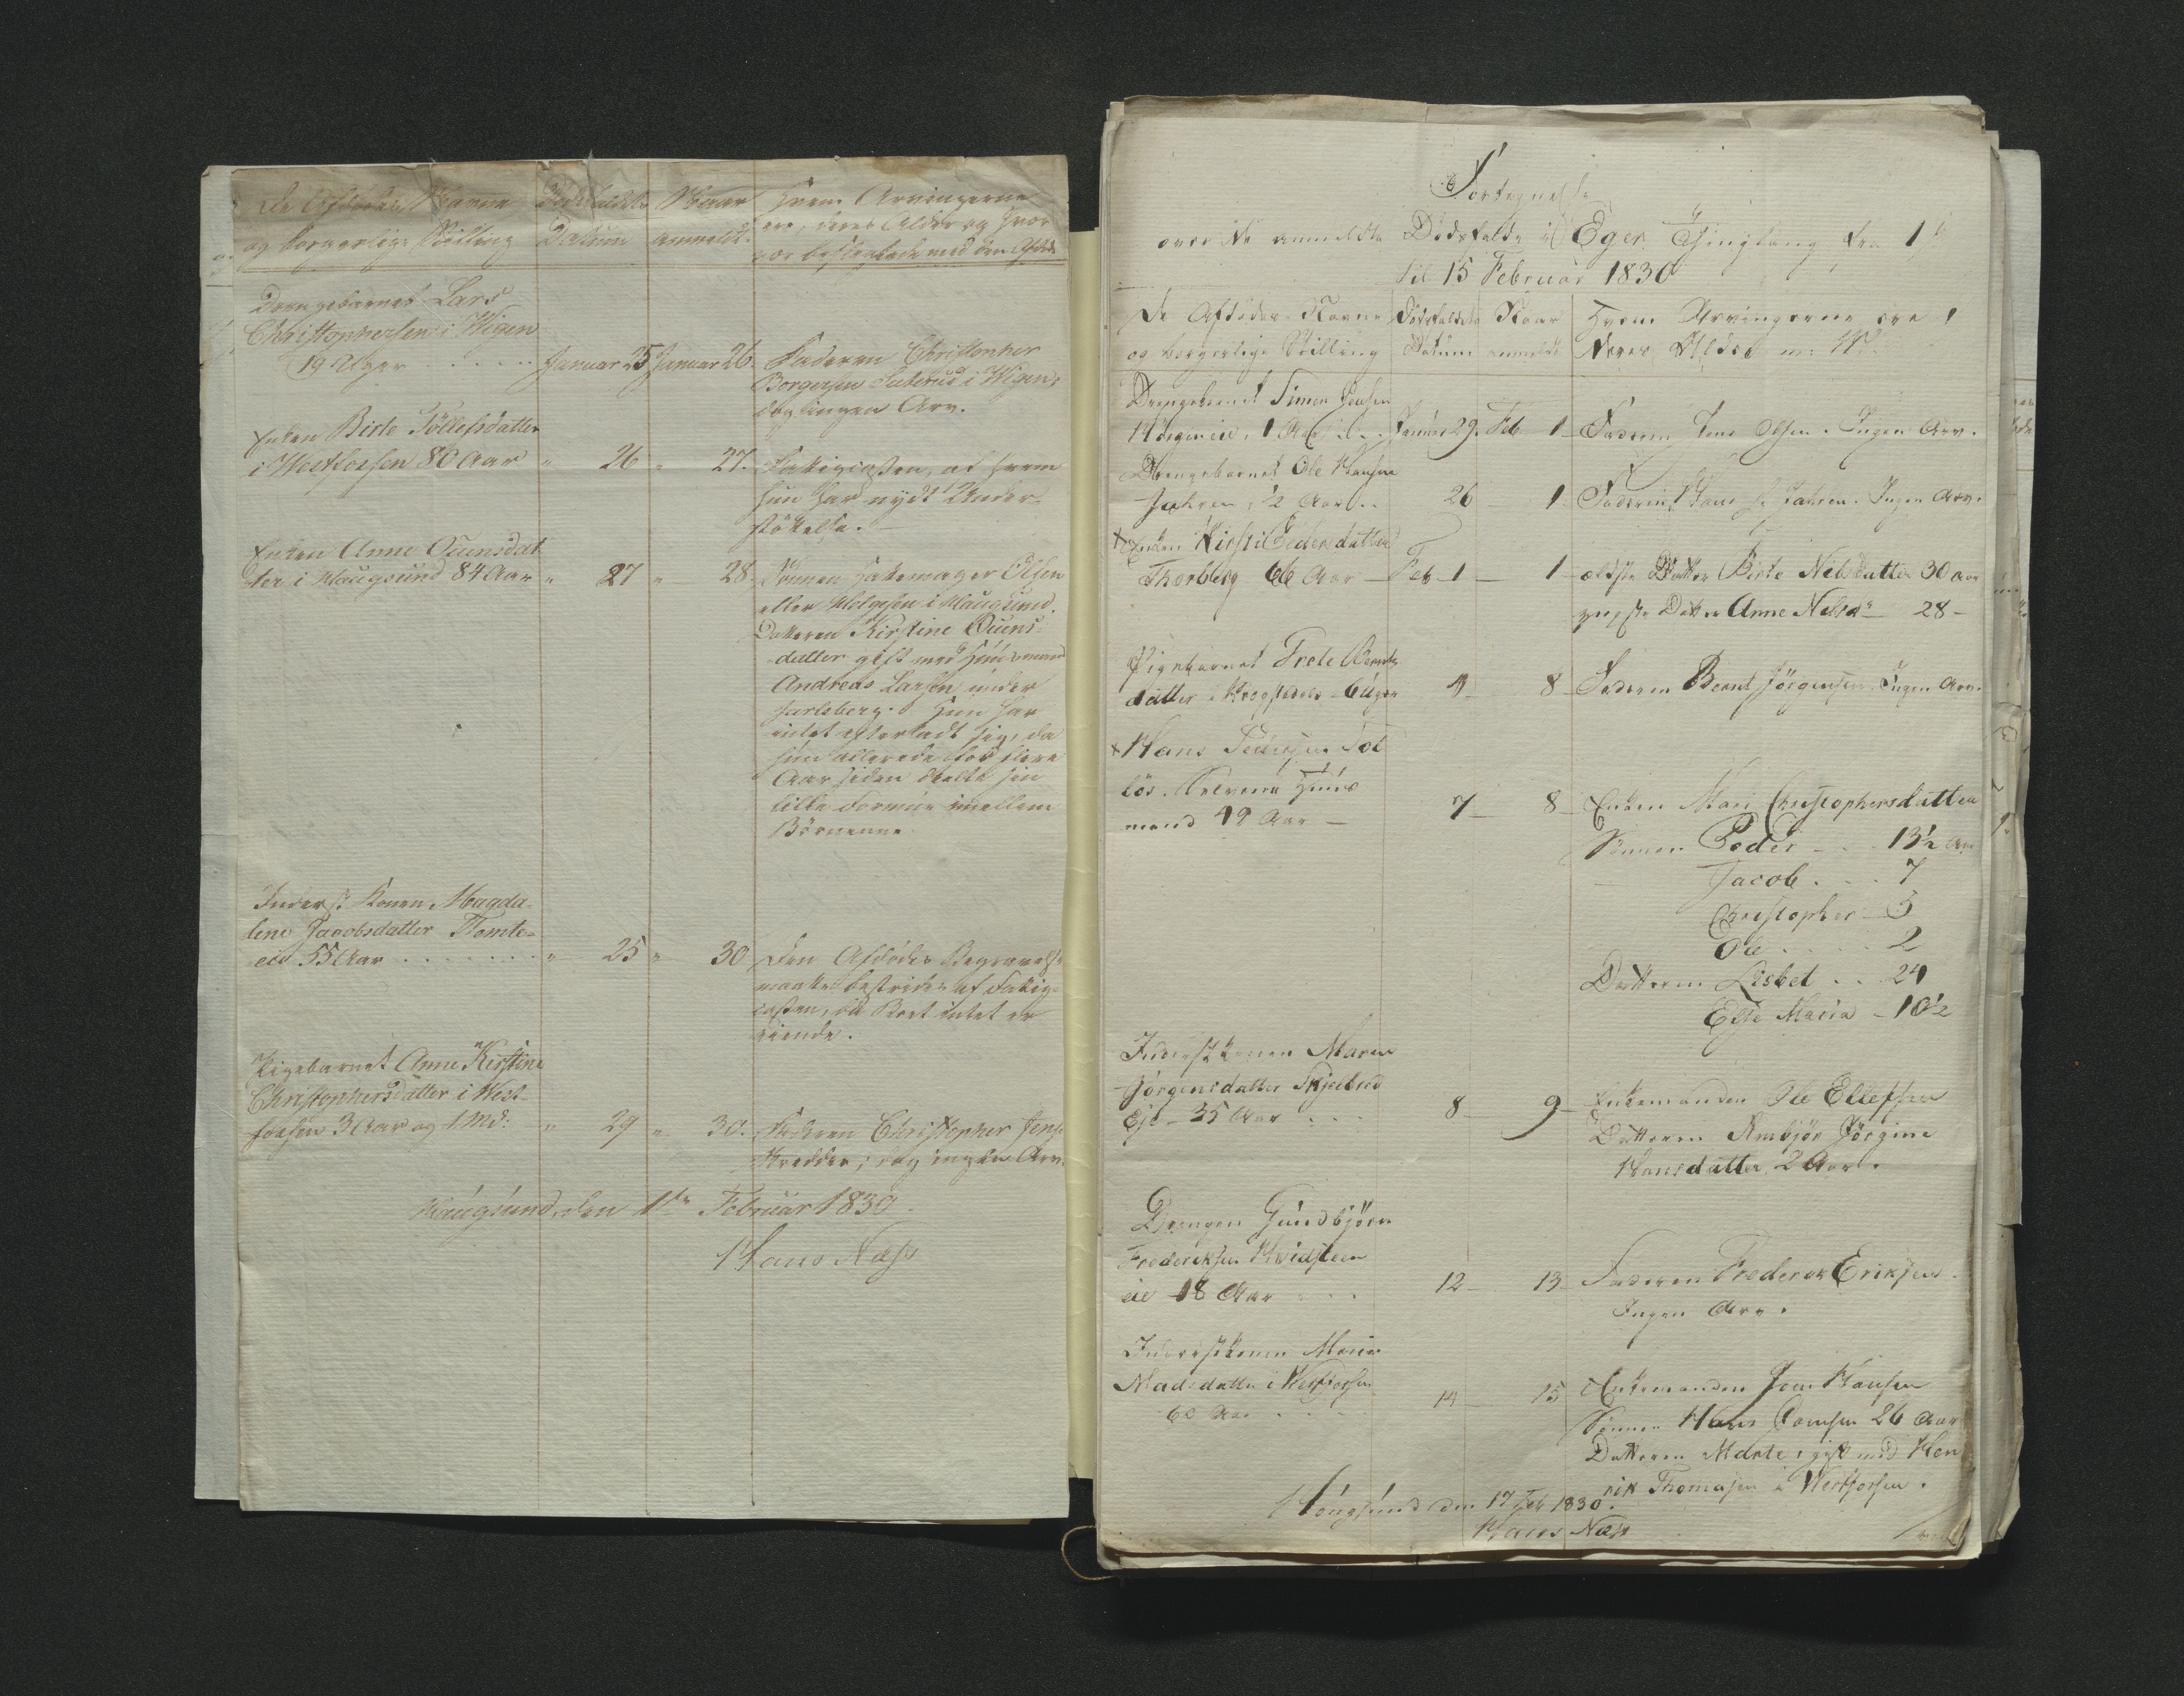 De Afdødes Navne
og borgerlige Stilling
Dødsfaldets
Datum
Naar
anmeldt.
Hvem Arvingerne
ere, deres Alder og hvor
nær beslægtede med den Afdøde
Drengebarnet Lars
Christophersen i Wigen
19 Uger . . . . . Januar 25 Januar 26. Faderen Christopher
Borgersen Sæterud i Wigen,
dog ingen Arv.
Enken Birte Tollefsdatter
i Westfossen 80 Aar " 26 " 27. Fattigcassen, af hvem
hun har nydt Under-
støttelse.
Enken Anne Ouensdat
ter i Haugsund 84 Aar " 27 " 28 Sönnen Hattemager Olsen
eller Holgesen i Haugsund.
Datteren Kirstine Ouens-
datter gift med Huusmand
Andreas Larsen under
Jarlsberg. Hun har
intet efterladt sig, da
hun allerede for flere
Aar siden deelte sin
lille Formue imellem
Börnenne.
Inderst Konen Magda-
lene Jacobsdatter Tomte-
eie 55 Aar . . . . . . . " 25 " 30 Den Afdödes Begravelse
maatte bestrides af Fattig-
cassen, da Boet intet er
eiende.
Pigebarnet Anne Kirstine
Christophersdatter i West-
fossen 3 Aar og 1 Md: " 29 " 30. Faderen Christopher Jens
Skredder; dog ingen Arv.
Haugsund, den 1ste Februar 1830.
Hans Næss
Fortegnelse
over de anmeldte Dödsfalde i Eger Thinglaug fra 1
til 15 Februar 1830
De Afdödes Navne
og borgerlige Stilling
Dödsfaldets
Datum
Naar
anmeldt
Hvem Arvingerne ere,
deres Alder m: V:
Drengebarnet Simen Jensen
1 Aar . . . Januar 29. Feb 1 Faderen Jens Olsen. Ingen Arv.
Drengebarnet Ole Hansen
Fahren, ½ Aar . . 26 1 Faderen Hans Fahren. Ingen Arv.
x Enken Kirsti Pedersdatter
Thorbberg 66 Aar — Feb 1 — 1 — ældste Datter Birte Nilsdatter 30 Aar
yngste Datter Anne Nilsdr 28 —
Pigebarnet Grete Bernts
datter 6 Uger 4 — 8 — Faderen Bernt Jörgensen. Ingen Arv.
x Hans Pedersen Tol
lös. Huus
mand 49 Aar — 7 — 8 — Enken Mari Christophersdatter
Sönnen Peder . . . 13½ Aar
Jacob . . . 7
Christopher — 5
Ole . . . . 2
Datteren Lisbet . . 24
Else Maria — 10½
Inderstkonen Maren
Jörgensdatter Skjelbred
Eje — 35 Aar . . . 8 — 9 — Enkemanden Ole Ellefsen
Datteren Anbjör Jörgine
Hansdatter 2 Aar.
Drengen Gundbjörn
Frederiksen Hvidsteen
eie 18 Aar . . . 12 — 13 — Faderen Frederik Eriksen.
Ingen Arv.
Inderstkonen Maria
Madsdatter i Westfossen
60 Aar . . . 14 — 15 Enkemanden Joen Hansen
Sönnen Hans Joensen 26 Aar
Datteren Marte, gift med Hen
rik Thomasen i Westfossen.
Hougsund den 17 Feb 1830.
Hans Næss